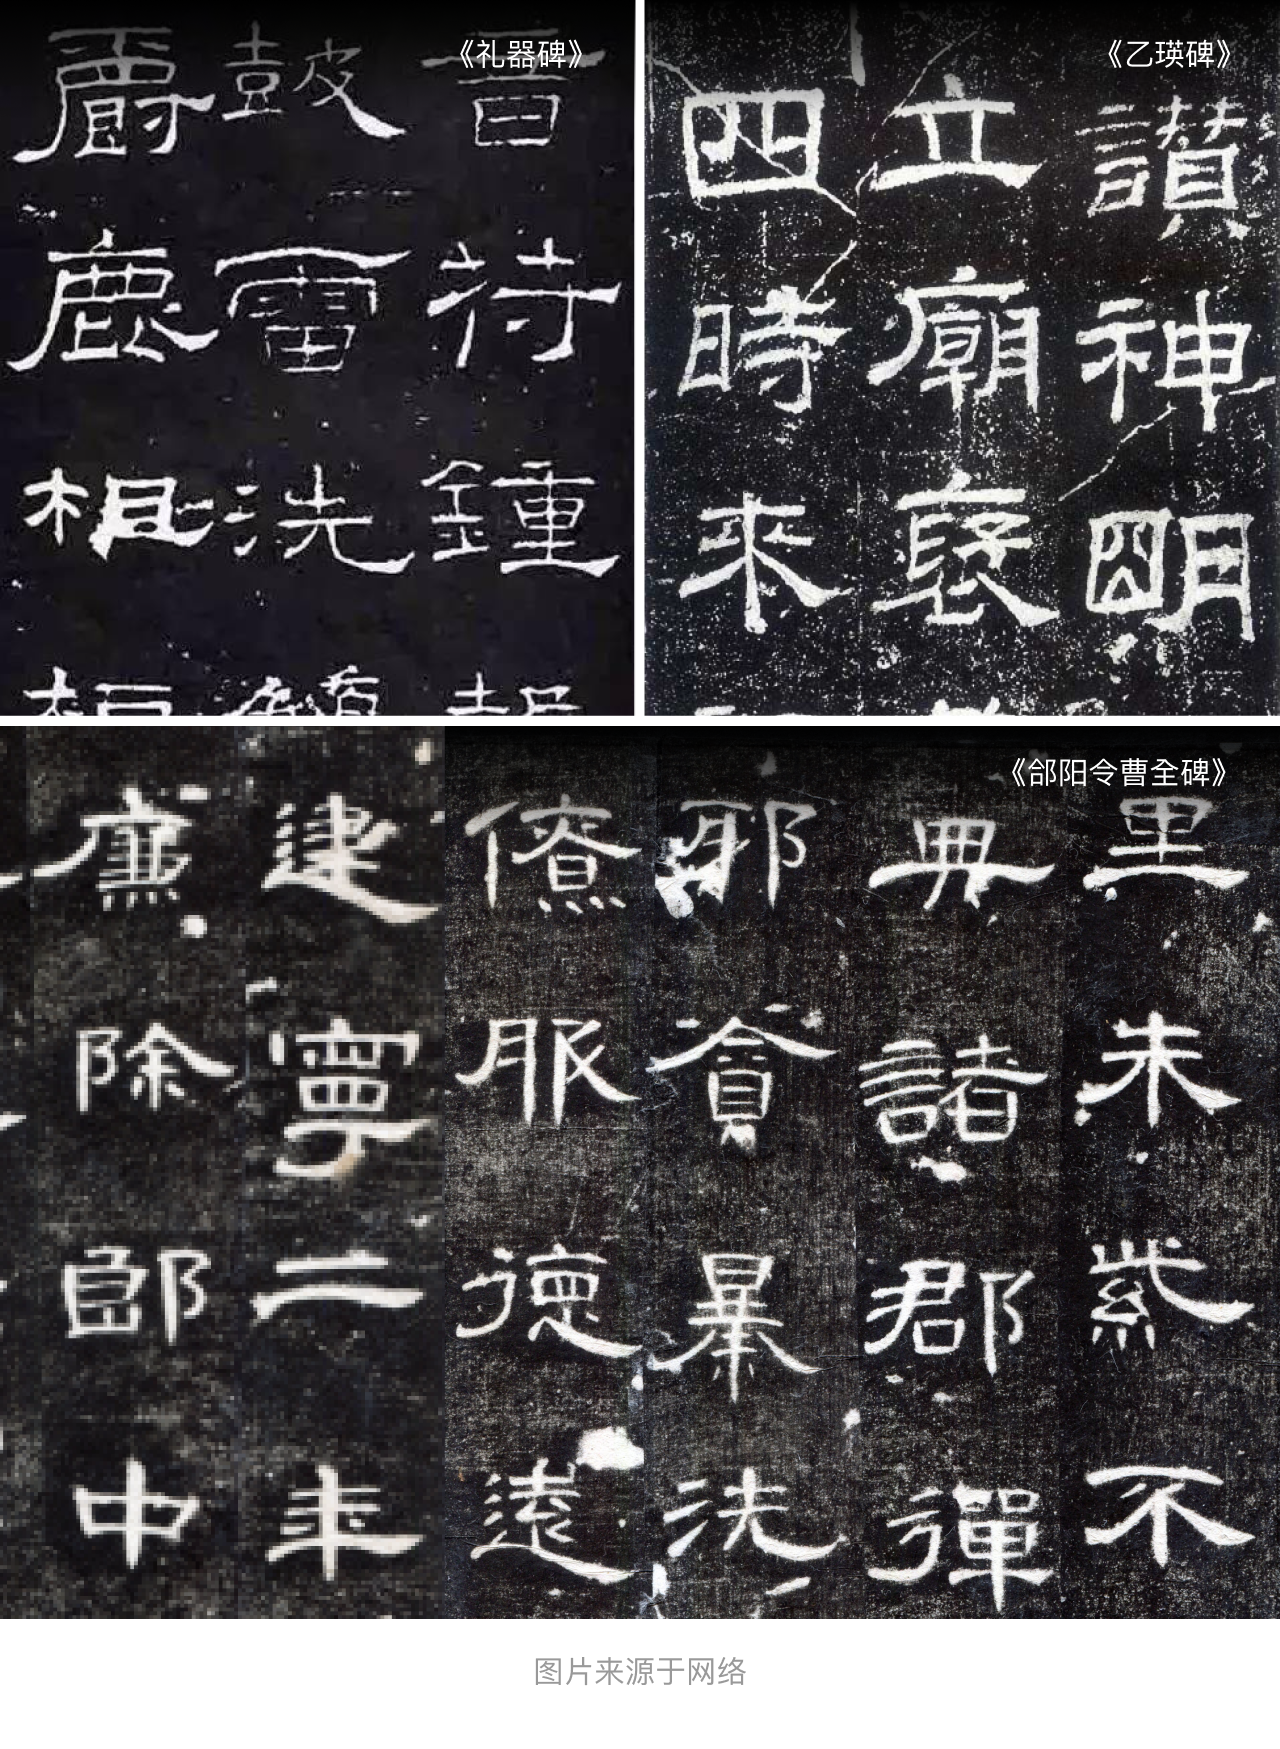 《礼器碑》
音符鍾
鼓雷洗
爵鹿柤
《乙瑛碑》
讚神明
立廟褒
四時來
《郃阳令曹全碑》
里朱紫不
典諸郡彈
邪貪暴洗
僚服德遠
建寧二年
廉除郎中
图片来源于网络